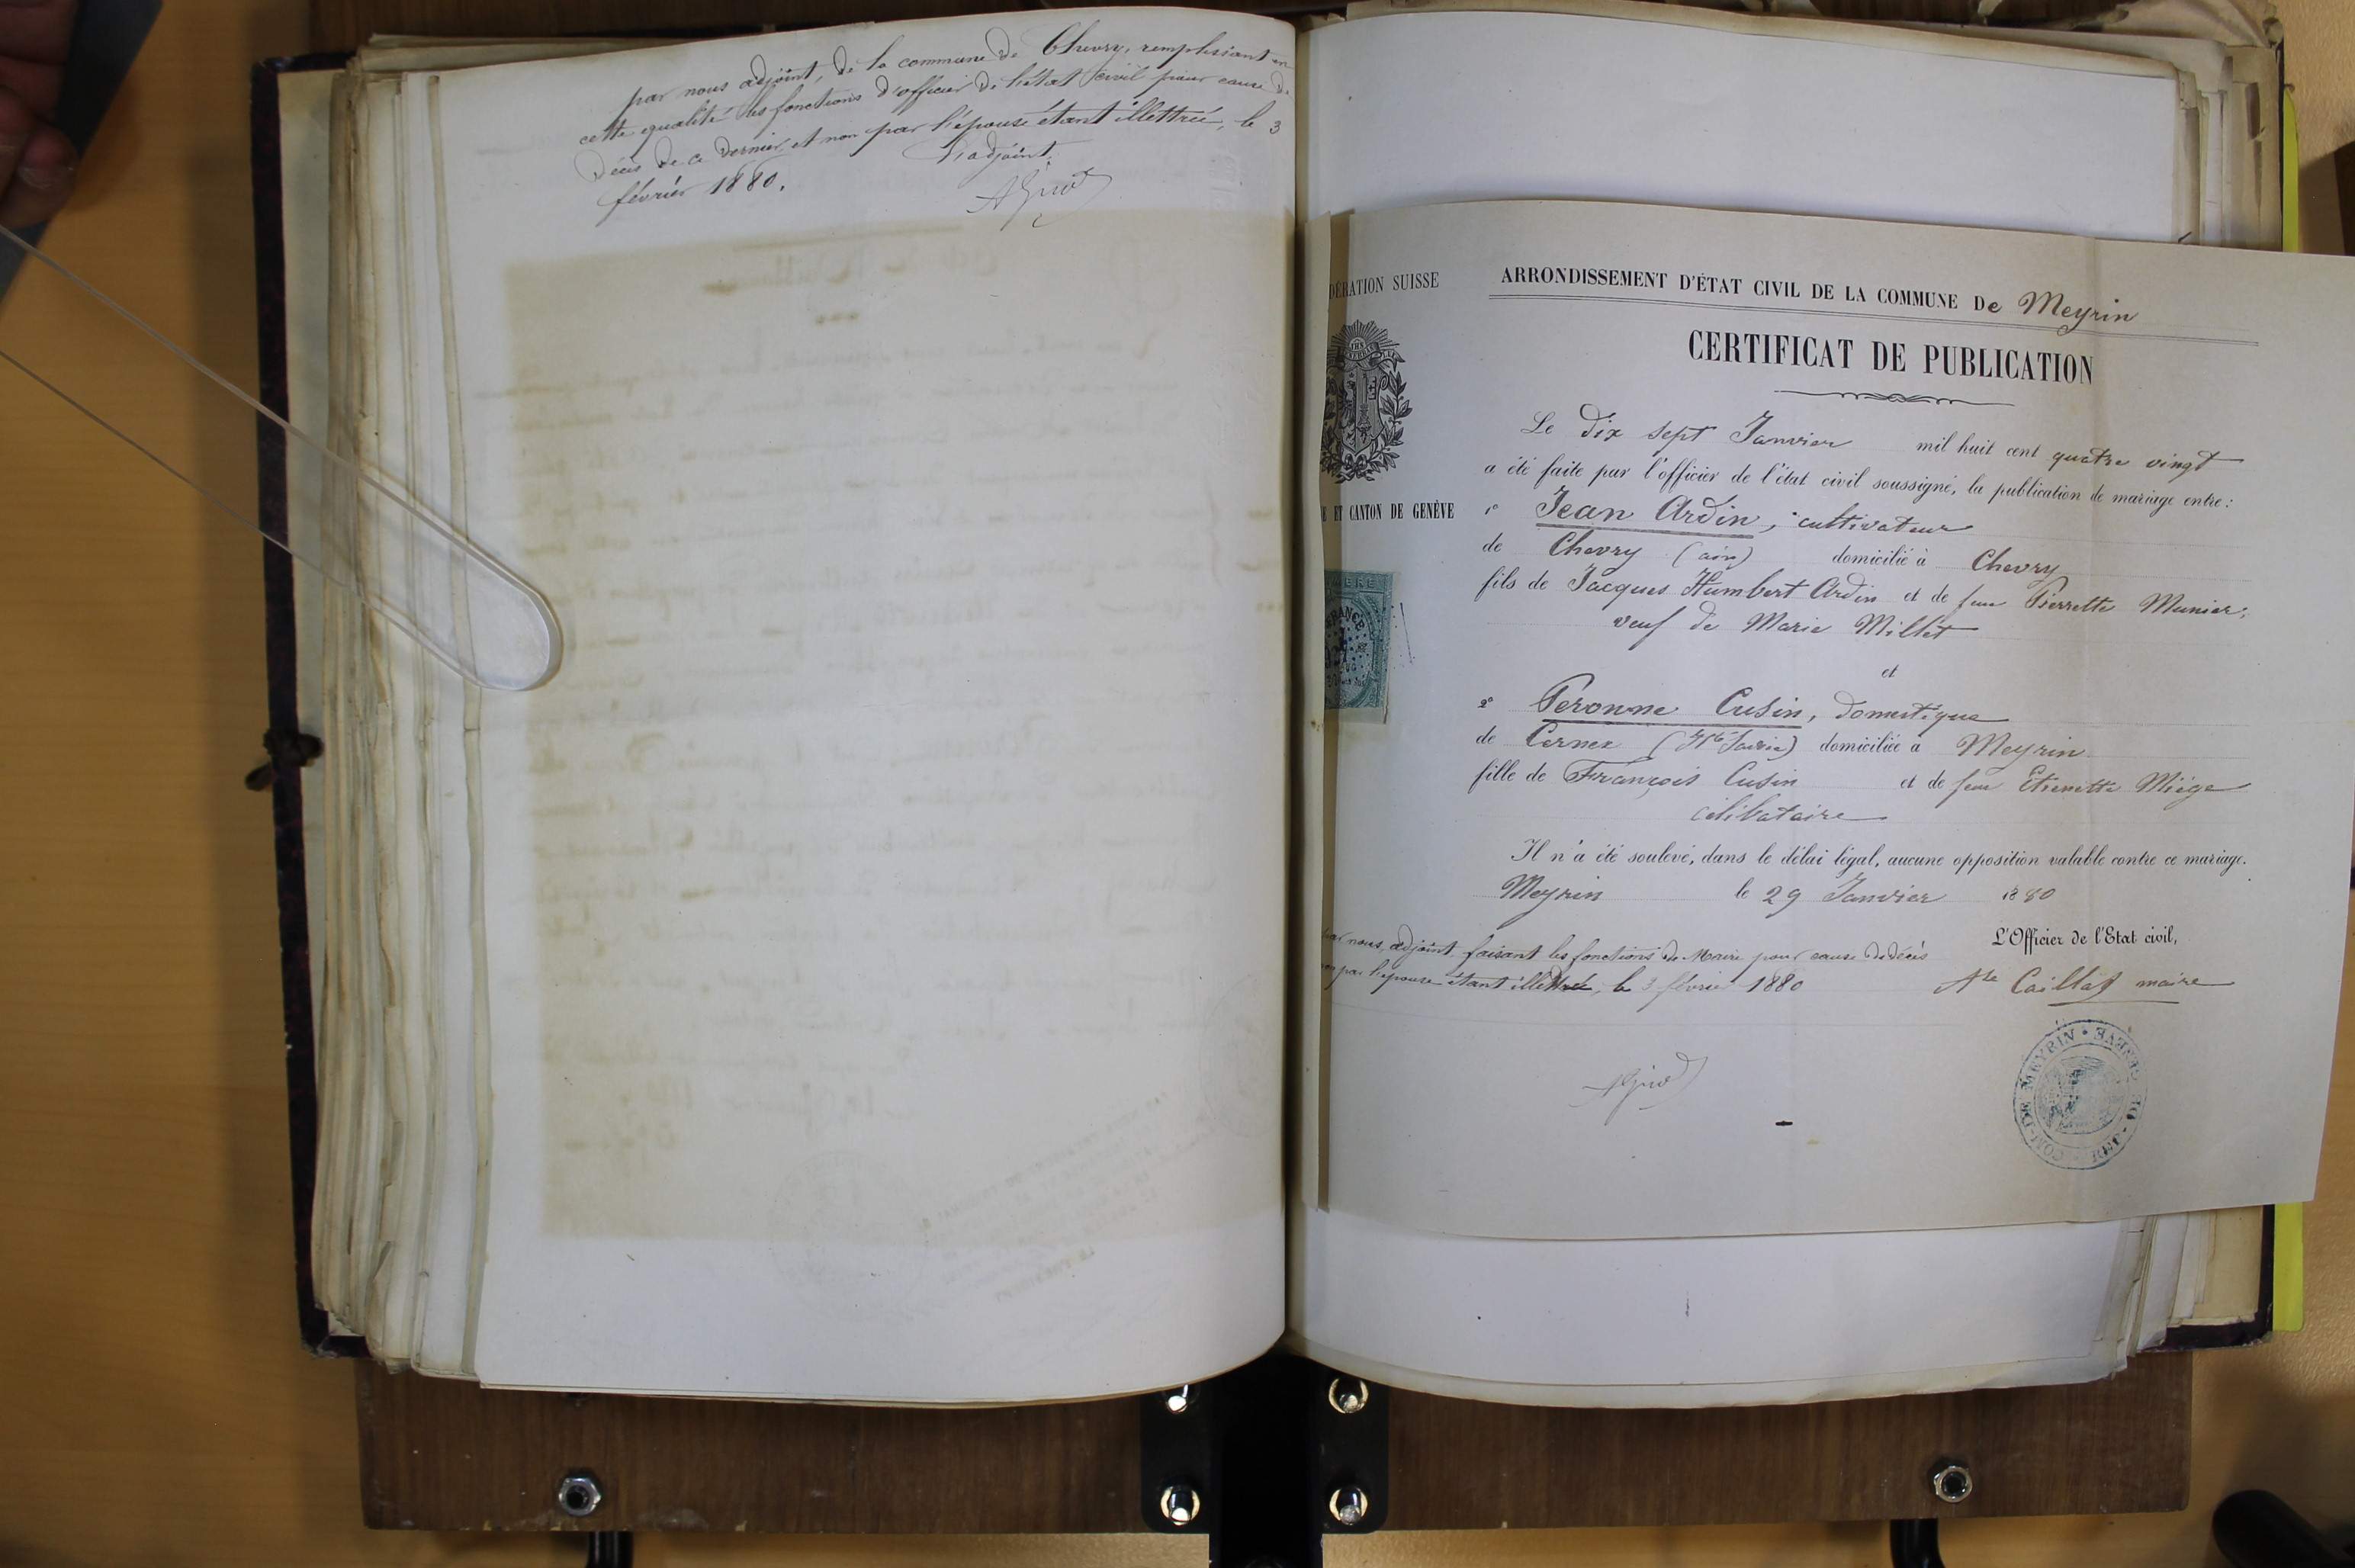 par nous adjoint, de la commune de Chevry, remplissant en
cette qualité les fonctions d'officier de l'état civil pour cause de
décès de ce dernier, et non par l'épouse étant illettrée, le 3
février 1880.
L'adjoint,
DÉRATION SUISSE
ARRONDISSEMENT D'ÉTAT CIVIL DE LA COMMUNE De Meyrin
CERTIFICAT DE PUBLICATION
Le Dix sept Janvier mil huit cent quatre vingt
a été faite par l'officier de l'état civil soussigné, la publication de mariage entre:
E ET CANTON DE GENÈVE
1° Jean Ardin, cultivateur
de Chevry (ain) domicilié à Chevry
fils de Jacques Humbert Ardin et de feue Pierrette Munier,
veuf de Marie Millet
et
2° Peronne Cusin, Domestique
de Cernex (Hte Savoie) domiciliée à Meyrin
fille de François Cusin et de feue Etiennette Miége
célibataire
Il n'a été soulevé, dans le délai légal, aucune opposition valable contre ce mariage.
Meyrin le 29 Janvier 1880
L'Officier de l'Etat civil,
par nous, adjoint, faisant les fonctions de Maire pour cause de décès
non par l'épouse étant illettrée, le 3 février 1880
Caillat maire
COM. DE MEYRIN • RÉP. DE GENÈVE